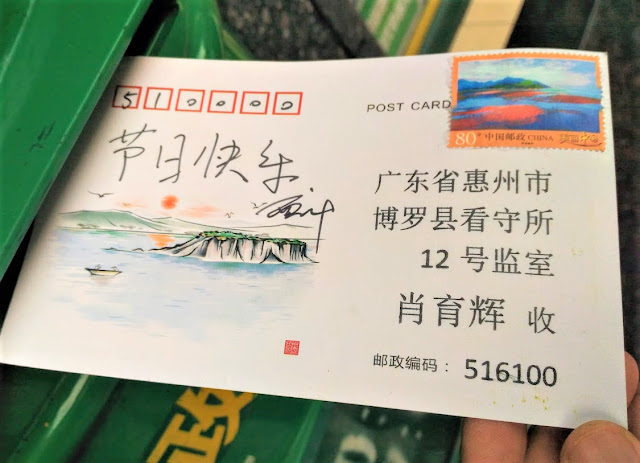 510000
POST CARD
80分 中国邮政 CHINA
节日快乐
广东省惠州市
博罗县看守所
12号监室
肖育辉 收
邮政编码：516100